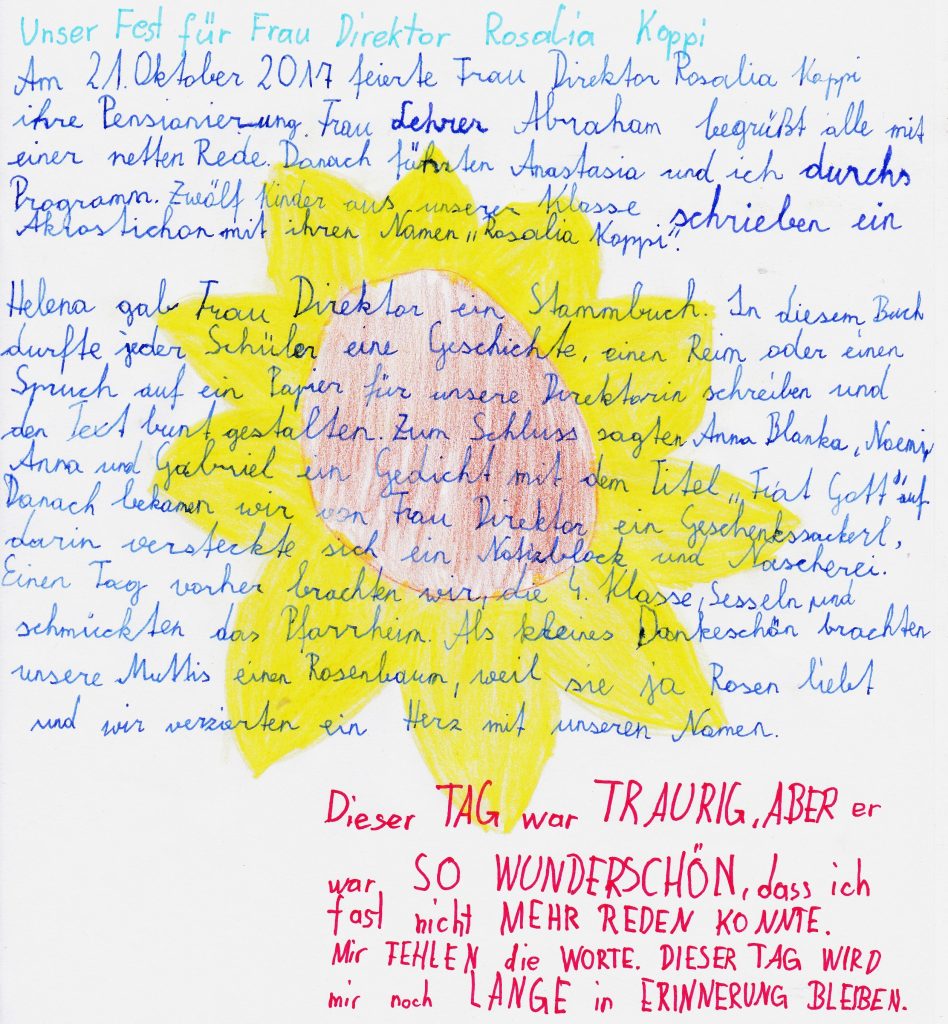 Unser Fest für Frau Direktor Rosalia Koppi
Am 21. Oktober 2017 feierte Frau Direktor Rosalia Koppi
ihre Pensionierung. Frau Lehrer Abraham begrüßt alle mit
einer netten Rede. Danach führten Anastasia und ich durchs
Programm. Zwölf Kinder aus unserer Klasse schrieben ein
Akrostichon mit ihren Namen „Rosalia Koppi".
Helena gab Frau Direktor ein Stammbuch. In diesem Buch
durfte jeder Schüler eine Geschichte, einen Reim oder einen
Spruch auf ein Papier für unsere Direktorin schreiben und
den Text bunt gestalten. Zum Schluss sagten Anna Blanka, Noemi,
Anna und Gabriel ein Gedicht mit dem Titel „Frat Gott" auf
Danach bekamen wir von Frau Direktor ein Geschenkssackerl,
darin versteckte sich ein Notizblock und Nascherei.
Einen Tag vorher brachten wir, die 4. Klasse, Sesseln und
schmückten das Pfarrheim. Als kleines Dankeschön brachten
unsere Muttis einen Rosenbaum, weil sie ja Rosen liebt
und wir verzierten ein Herz mit unseren Namen.
Dieser TAG war TRAURIG, ABER er
war SO WUNDERSCHÖN, dass ich
fast nicht MEHR REDEN KONNTE.
Mir FEHLEN die WORTE. DIESER TAG WIRD
mir noch LANGE in ERINNERUNG BLEIBEN.